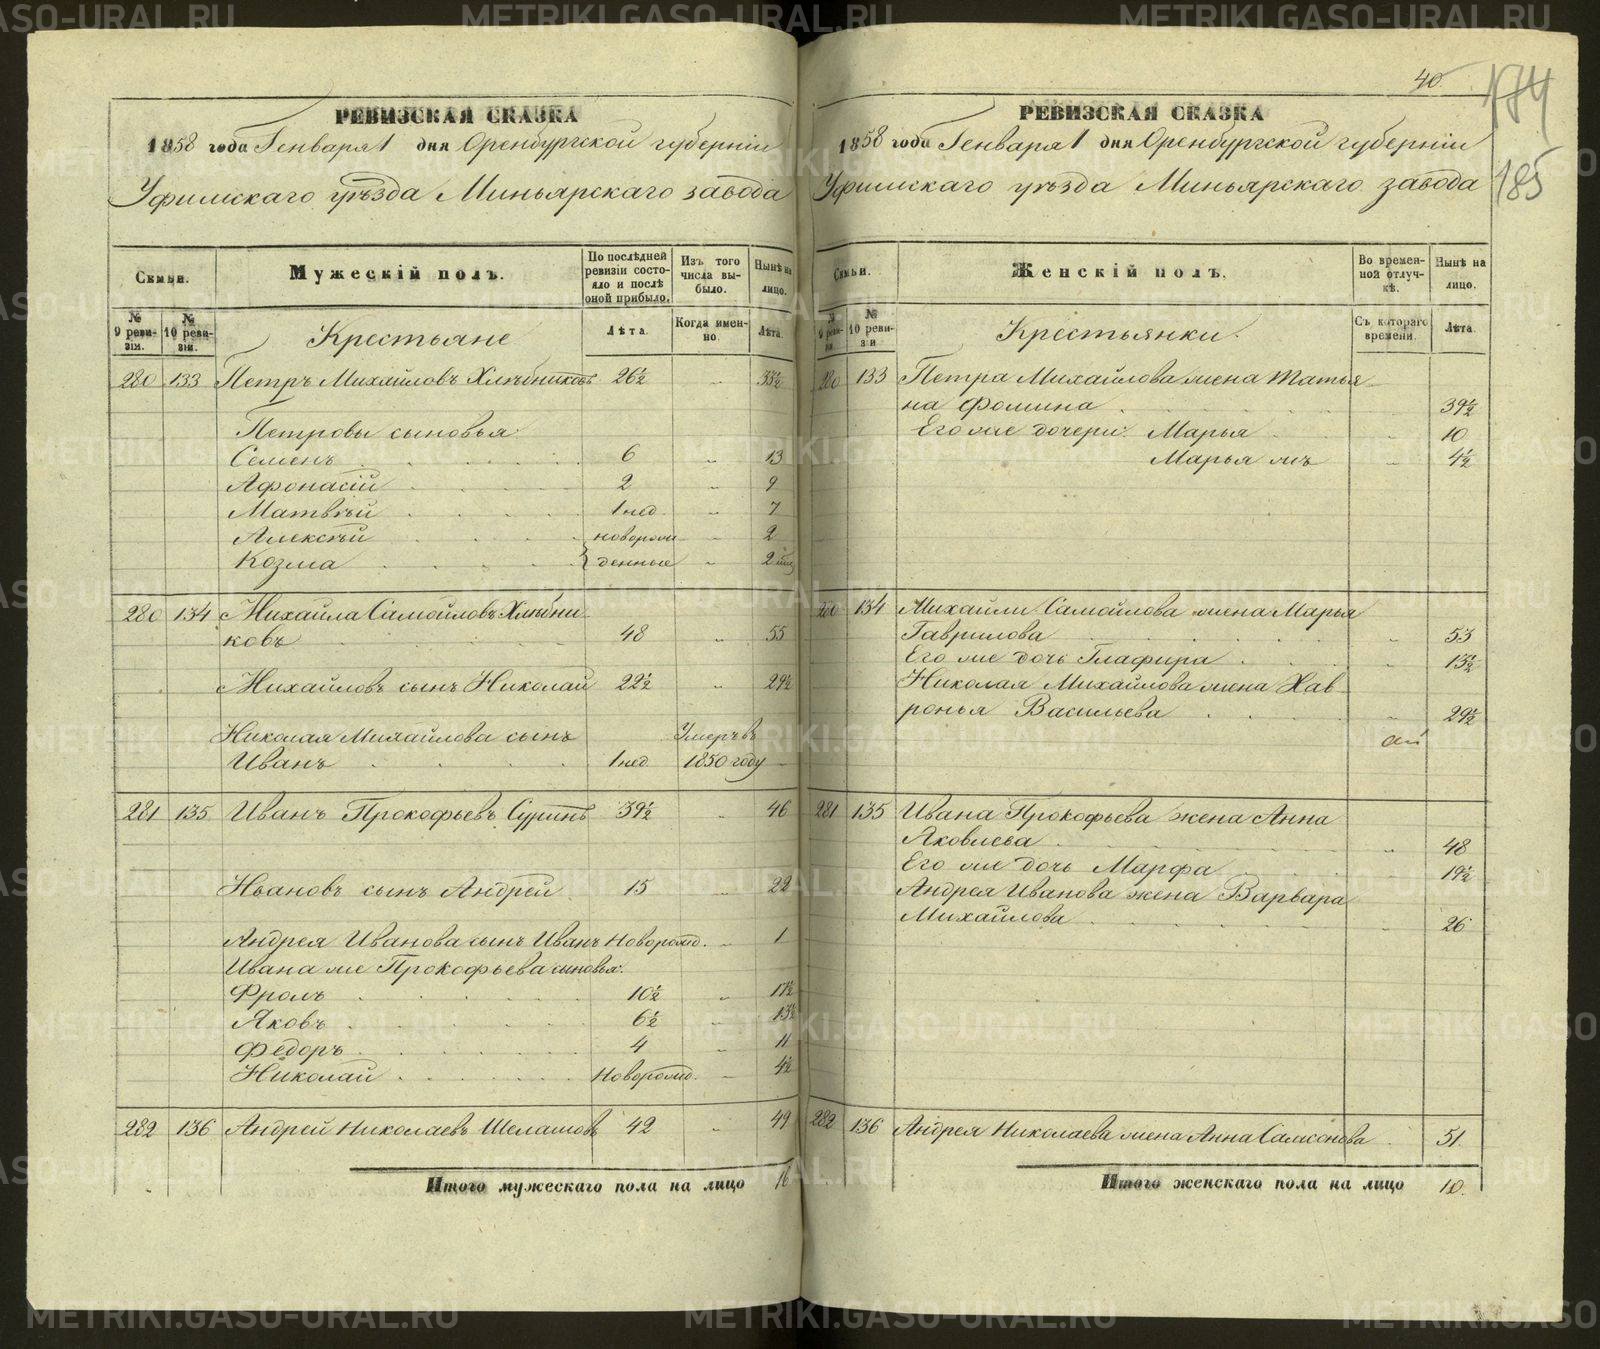 40.
184
185
РЕВИЗСКАЯ СКАЗКА
1858 года Генваря 1 дня Оренбургской губернiи
Уфимскаго уѣзда Миньярскаго завода
Семьи.
Мужескiй полъ.
По послѣдней ревизiи состояло и послѣ оной прибыло.
Изъ того числа выбыло.
Нынѣ на лицо.
№ 9 ревизiи.
№ 10 ревизiи.
Крестьяне
Лѣта.
Когда именно.
Лѣта.
280 133 Петръ Михайловъ Хлѣбниковъ 26½ „ 33½
Петровы сыновья:
Семенъ 6 „ 13
Афонасiй 2 „ 9
Матвѣй 1 нед. „ 7
Алексѣй новорож „ 2
Козма денные „ 2
280 134 Михайла Самойловъ Хлѣбни
ковъ 48 „ 55
Михайловъ сынъ Николай 22½ „ 29½
Николая Михайлова сынъ Умеръ въ
Иванъ 1 нед. 1850 году
281 135 Иванъ Прокофьевъ Суринъ 39½ „ 46
Ивановъ сынъ Андрей 15 „ 22
Андрея Иванова сынъ Иванъ Новорожд. „ 1
Ивана же Прокофьева сыновья:
Фролъ 10½ „ 17½
Яковъ 6½ „ 13½
Федоръ 4 „ 11
Николай Новорожд. „ 4½
282 136 Андрей Николаевъ Шеламовъ 42 „ 49
Итого мужескаго пола на лицо 16
РЕВИЗСКАЯ СКАЗКА
1858 года Генваря 1 дня Оренбургской губернiи
Уфимскаго уѣзда Миньярскаго завода
Семьи.
Женскiй полъ.
Во временной отлучкѣ.
Нынѣ на лицо.
№ 9 ревизiи.
№ 10 ревизiи
Крестьянки.
Съ котораго времени.
Лѣта.
280 133 Петра Михайлова жена Татья
на Фомина 39½
Его же дочери: Марья 10
Марья жъ „ 4½
280 134 Михайлы Самойлова жена Марья
Гаврилова „ 53
Его же дочь Глафира „ 13½
Николая Михайлова жена Хав
ронья Васильева „ 29½
281 135 Ивана Прокофьева жена Анна
Яковлева „ 48
Его же дочь Марфа 19½
Андрея Иванова жена Варвара
Михайлова „ 26
282 136 Андрея Николаева жена Анна Самсонова 51.
Итого женскаго пола на лицо 10.
METRIKI.GASO-URAL.RU